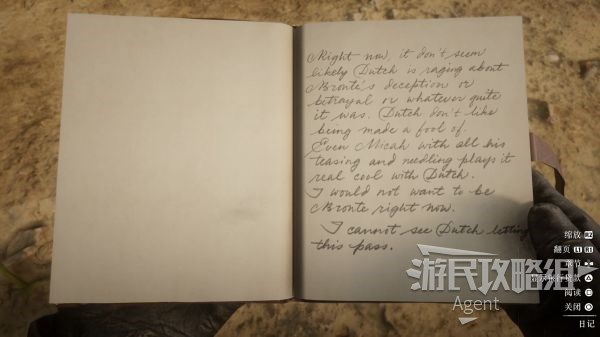 Right now, it don't seem
likely Dutch is raging about
Bronte's deception or
betrayal or whatever quite
it was. Dutch don't like
being made a fool of.
Even Micah with all his
teasing and needling plays it
real cool with Dutch.
I would not want to be
Bronte right now.
I cannot see Dutch letting
this pass.
缩放 R2
翻页 L1 R1
阅读
关闭
日记
游民攻略组
Agent